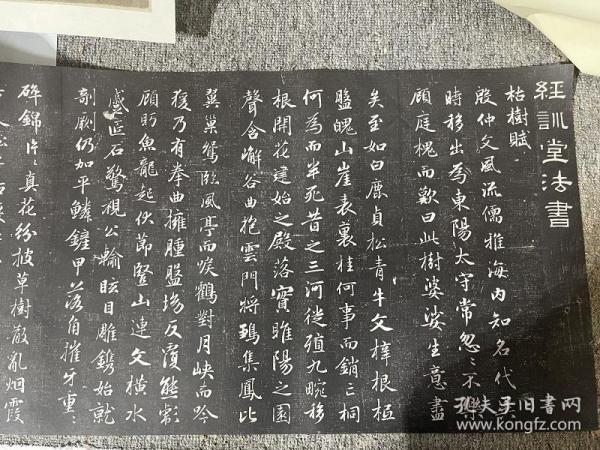 經訓堂法書
枯樹賦
殷仲文風流儒雅海內知名代異
時移出為東陽太守常忽忽不樂
顧庭槐而歎曰此樹婆娑生意盡
矣至如白鹿貞松青牛文梓根柢
盤魄山崖表裏桂何事而銷亡桐
何為而半死昔之三河徙殖九畹移
根開花建始之殿落實睢陽之園
聲含嶰谷曲抱雲門將鶵集鳳比
翼巢鴛臨風亭而唳鶴對月峽而吟
猨乃有拳曲擁腫盤坳反覆熊彪
顧盼魚龍起伏節豎山連文橫水
蹙匠石驚視公輸眩目雕鐫始就
剞劂仍加平鱗鏟甲落角摧牙重重
碎錦片片真花紛披草樹散亂烟霞
孔夫子旧书网
www.kongfz.com